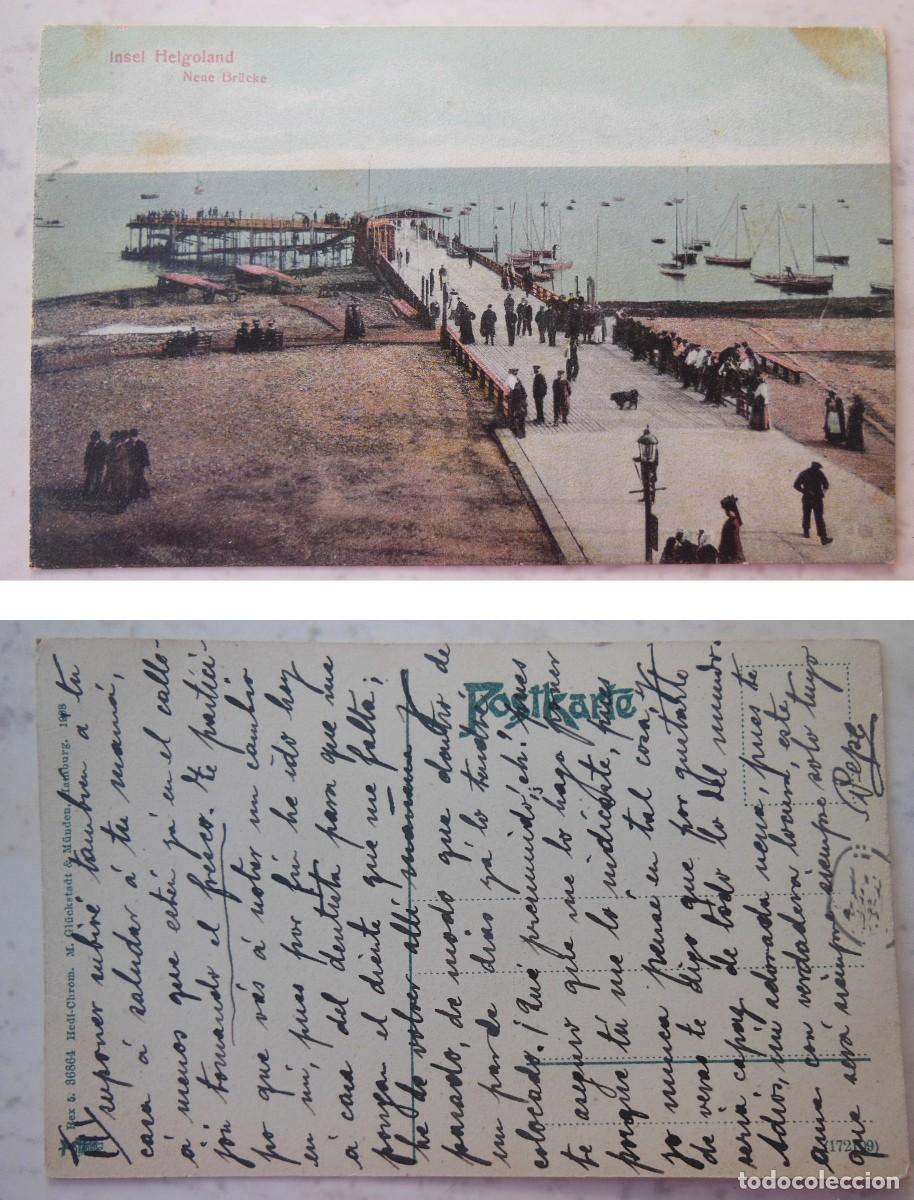 Insel Helgoland
Neue Brücke
Postkarte
Rex 5. 36864 Hedi-Chrom. M. Glückstadt & Münden, Hamburg. 1908
suponer subiré tambien a tu
cara á saludar á tu mamá,
á menos que estén yá en el callo-
jon tomando el fresco. Te partici-
po que vás á notar un cambio
en mi, pues por fin he ido hoy
a casa del dentista para que me
pongan el diente que me falta;
he de volver alli mañana y
parado, de modo que dentro de
un par de dias ya lo tendré
colocado. ¡Qué presumido, eh! pues
te aseguro que me lo hago poner
porque tú me lo indicaste, pues
yo nunca pensé en tal cosa, y
de veras te digo que por gustarte
seria capaz de todo lo del mundo.
Adios, mi adorada nena, pues te
ama con verdadera locura, este
que será siempre, siempre solo tuyo
Pepe
(172109)
todocoleccion
todocoleccion.net